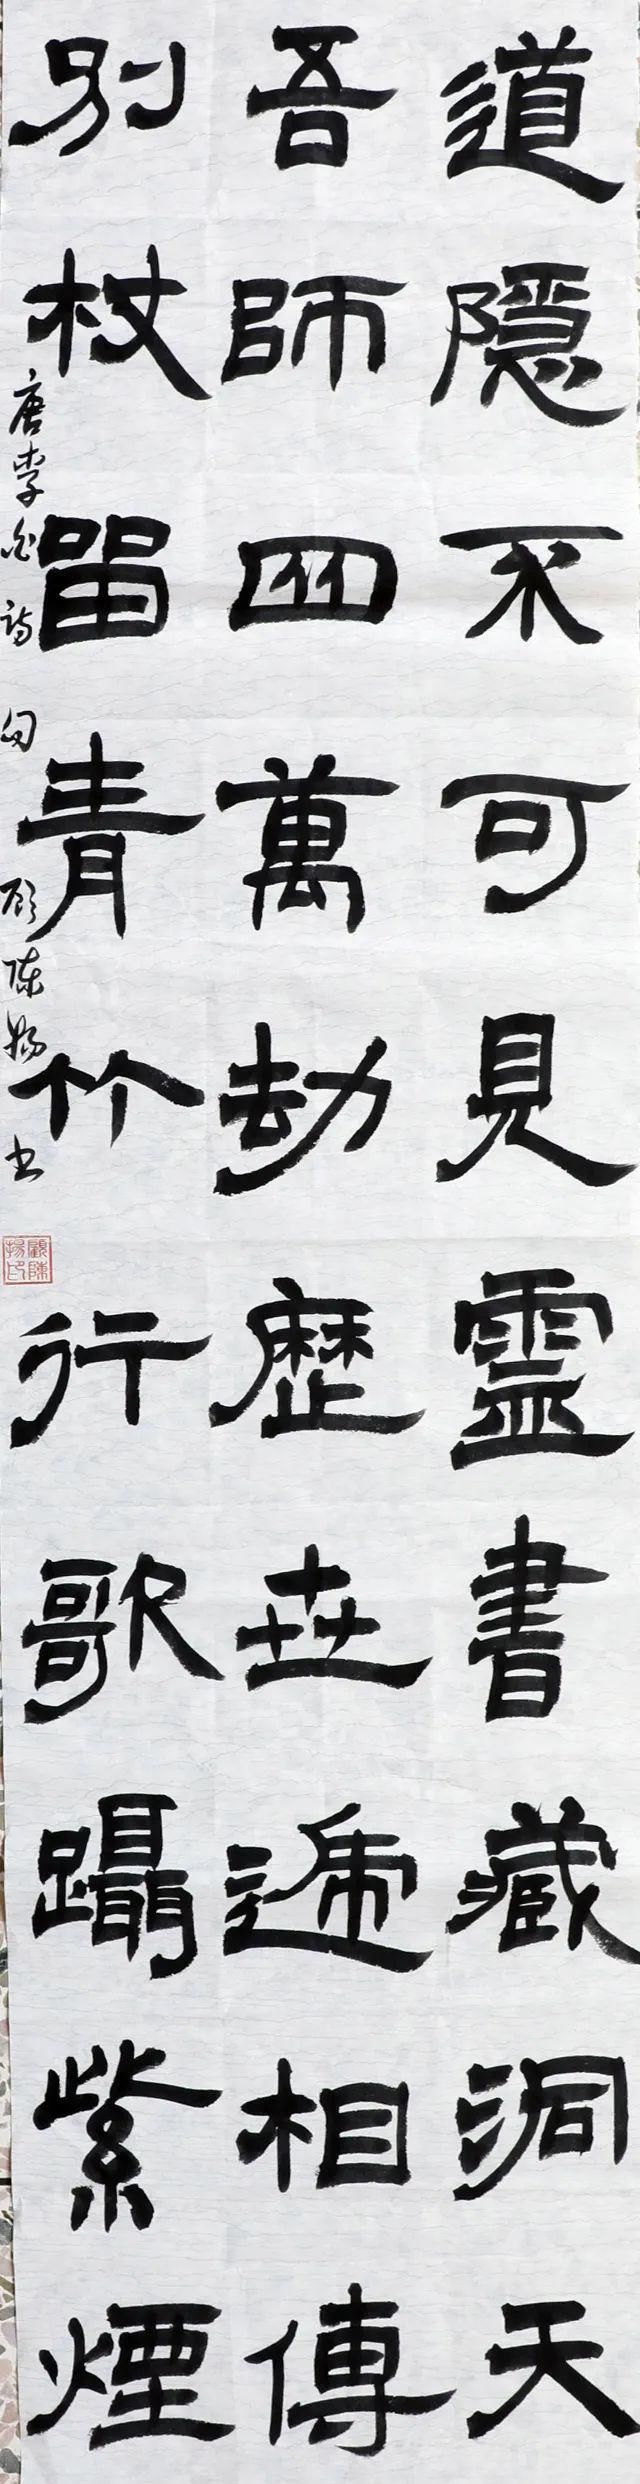 道隱不可見靈書藏洞天
吾師四萬劫歷世遞相傳
別杖留青竹行歌躡紫煙
唐李白詩句 顾陈扬书
顧陳揚印